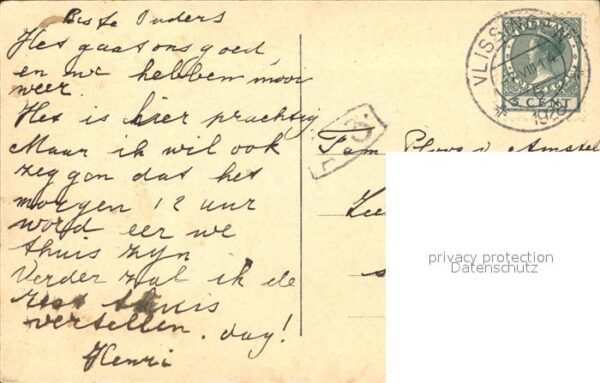 Beste Ouders
Het gaat ons goed,
en we hebben mooi
weer.
Het is hier prachtig
Maar ik wil ook
zeggen dat het
morgen 12 uur
word eer we
thuis zijn
Verder zal ik de
rest thuis
vertellen. dag!
Henri
VLISSINGEN
1928
5 CENT
Fam Ploos v. Amstel
privacy protection
Datenschutz